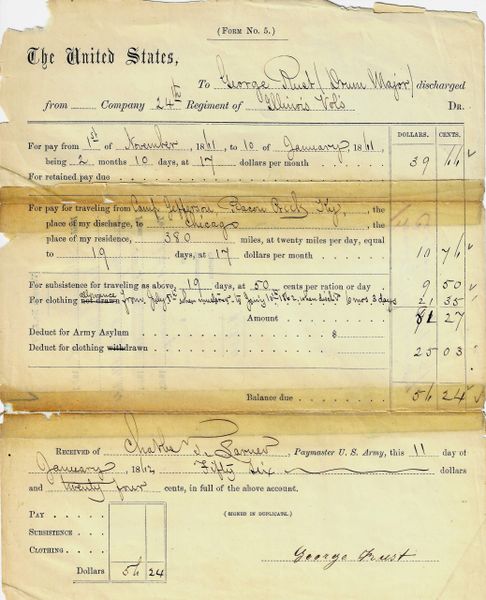 (Form No. 5.)
The United States,
To George Rust (Drum Major) discharged
from Company 24th Regiment of Illinois Vols Dr.
DOLLARS. CENTS.
For pay from 1st of November, 1861, to 10 of January, 1861,
being 2 months 10 days, at 17 dollars per month 39 66
For retained pay due
For pay for traveling from Camp Jefferson, Bacon Creek Ky, the
place of my discharge, to Chicago the
place of my residence, 380 miles, at twenty miles per day, equal
to 19 days, at 17 dollars per month 10 76
For subsistence for traveling as above, 19 days, at 50 cents per ration or day 9 50
For clothing not drawn allowance from July 8th when mustered to Jan'y 10th 1862, when disch'd 6 mos 3 days 21 35
Amount 81 27
Deduct for Army Asylum $
Deduct for clothing withdrawn 25 03
Balance due 56 24
Received of Charles T. Larned, Paymaster U. S. Army, this 11 day of
January, 1862, Fifty Six dollars
and twenty four cents, in full of the above account.
Pay
(SIGNED IN DUPLICATE.)
Subsistence
Clothing
George Rust
Dollars 56 24